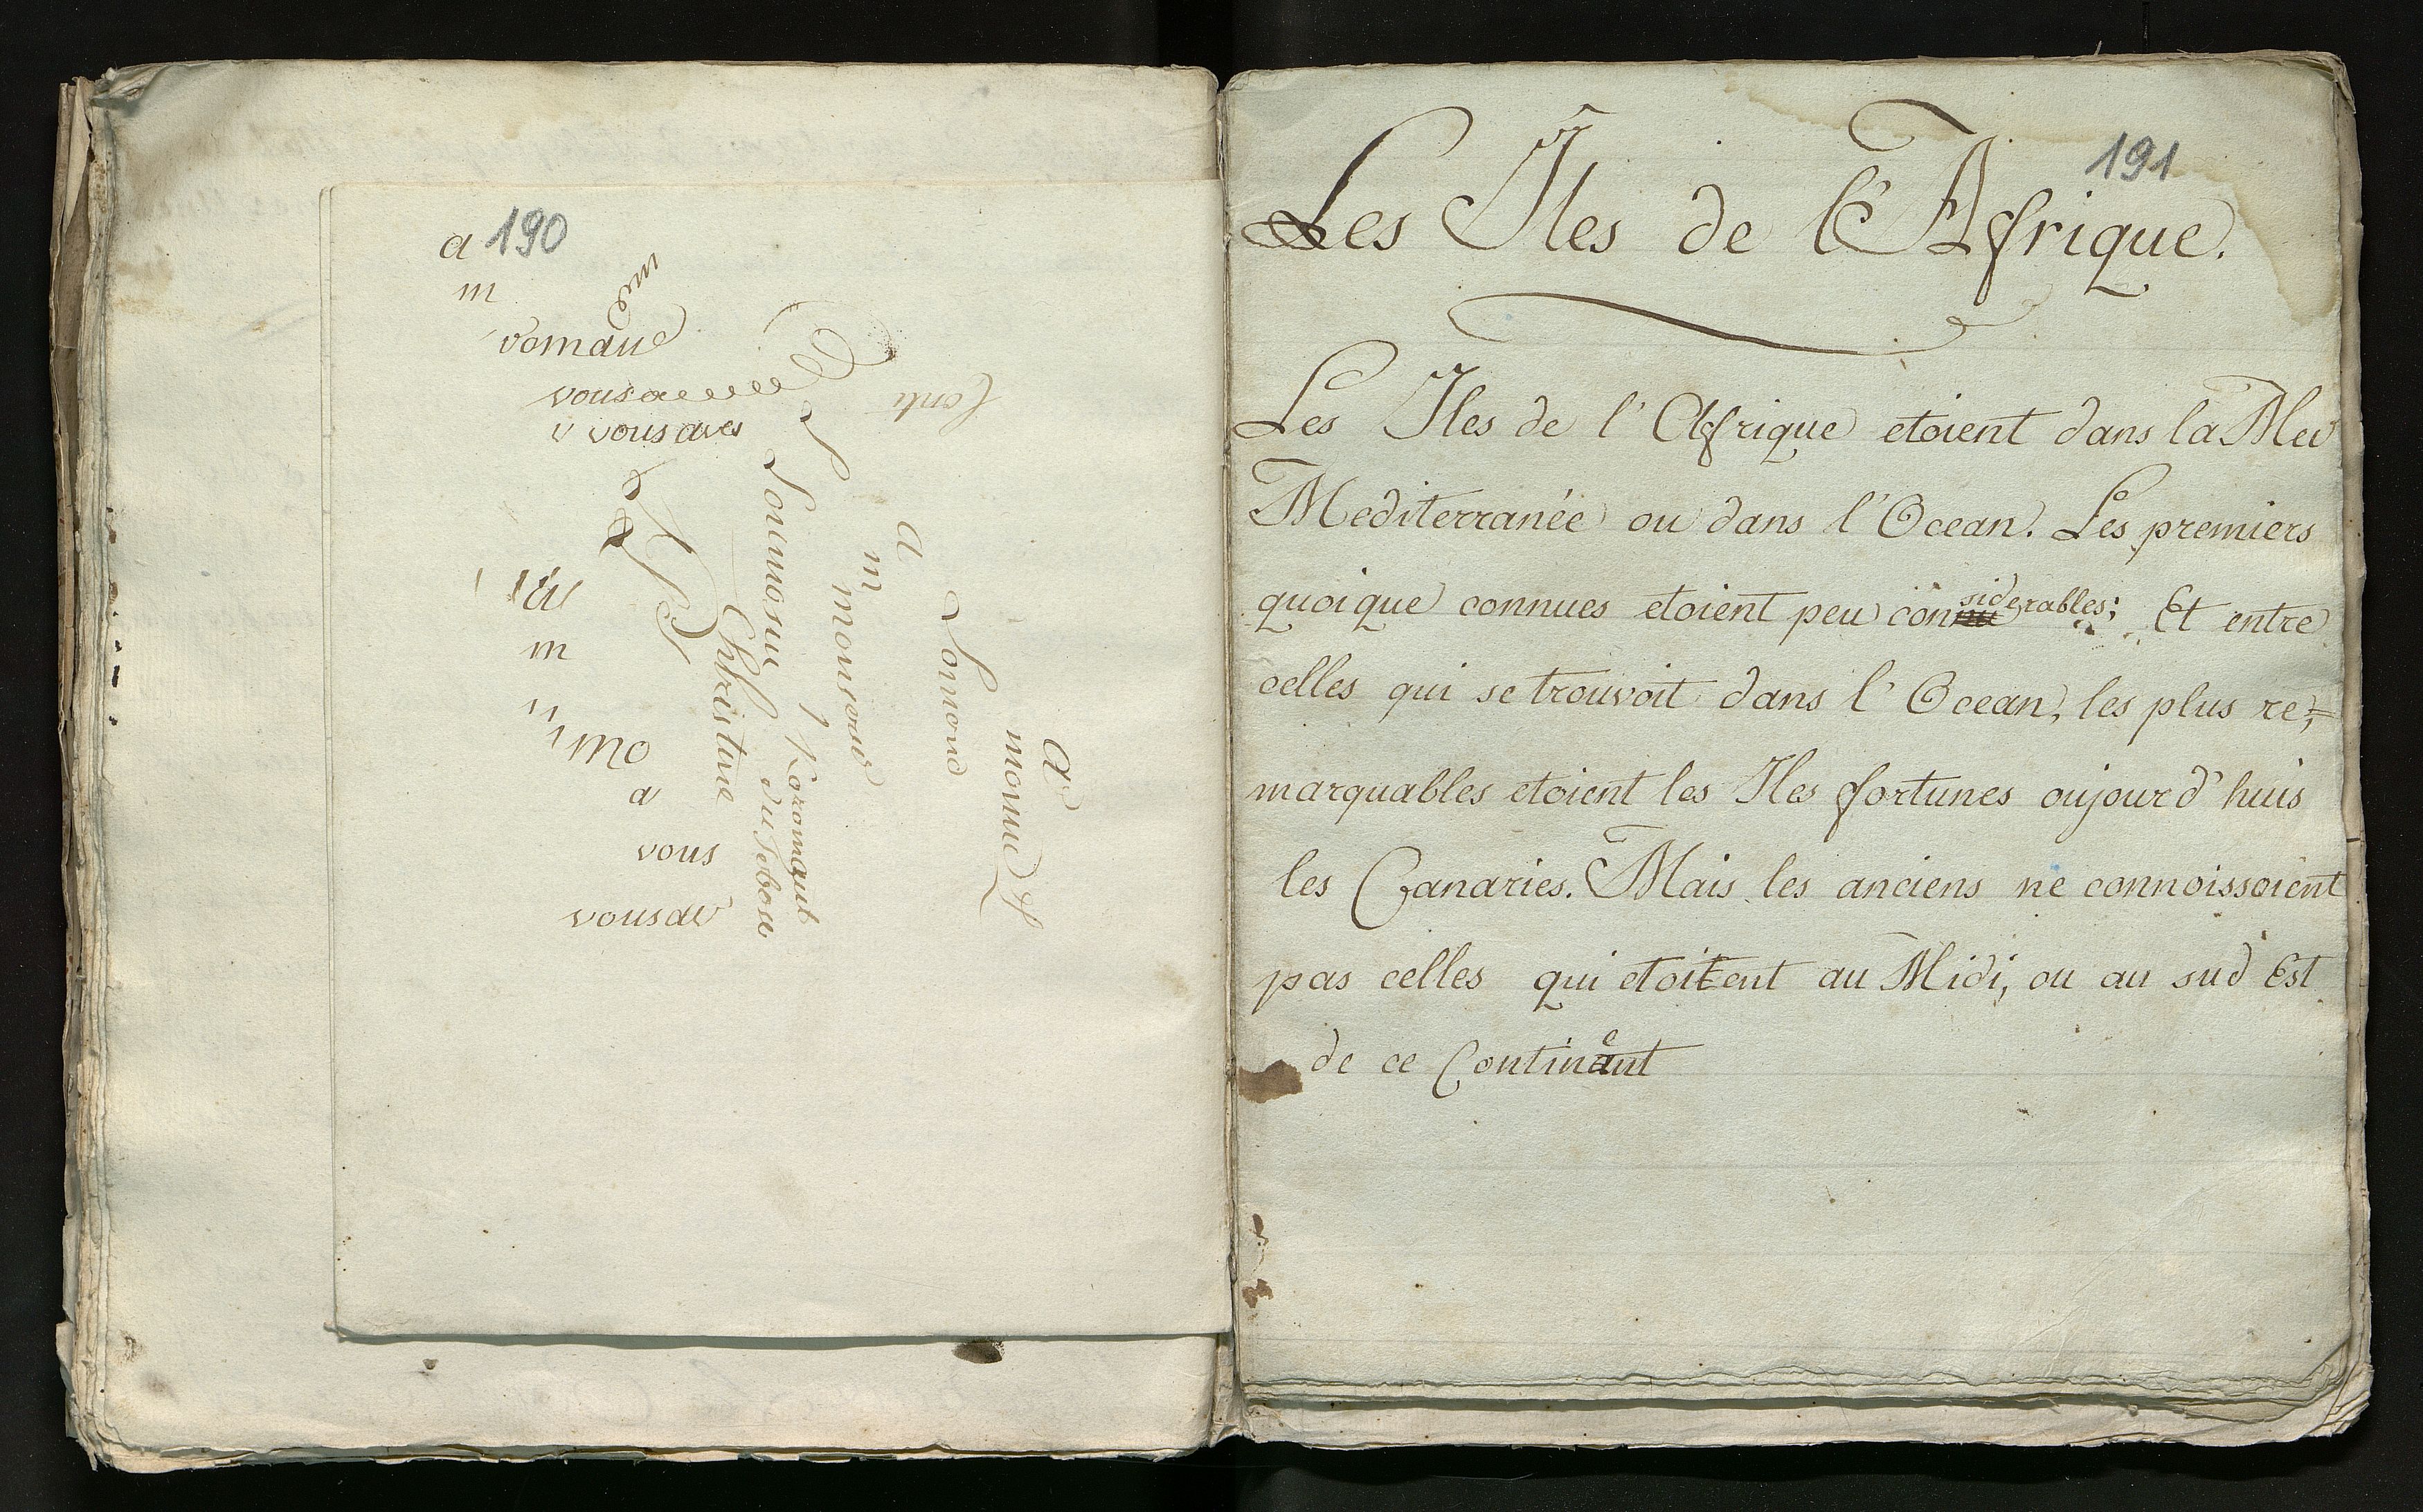 190
a
m
me
vomaue
vousaeeee
v vousaves
m
mo
a
vous
vousav
Christine
a
m
a
191
Les Iles de l'Afrique.
Les Iles de l'Afrique etoient dans la Med
Mediterranée ou dans l'Ocean. Les premiers
quoique connues etoient peu considerables; Et entre
celles qui se trouvoit dans l'Ocean, les plus re=
marquables etoient les Iles fortunes oujourd'huis
les Canaries. Mais les anciens ne connoissoient
pas celles qui etoitent au Midi, ou au sud Est
de ce Continent